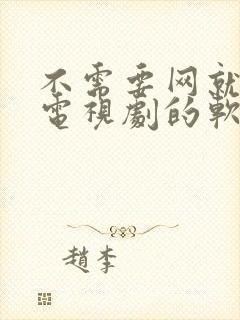 不需要网就
電視劇的軟
趙李